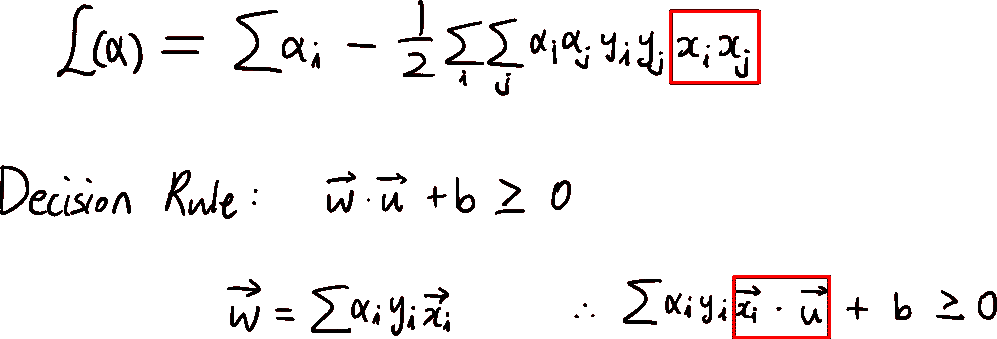 L(α) = ∑αᵢ − 1/2 ∑ᵢ∑ⱼ αᵢαⱼ yᵢyⱼ xᵢxⱼ
Decision Rule: w⃗ · u⃗ + b ≥ 0
w⃗ = ∑αᵢyᵢx⃗ᵢ ∴ ∑αᵢyᵢx⃗ᵢ · u⃗ + b ≥ 0